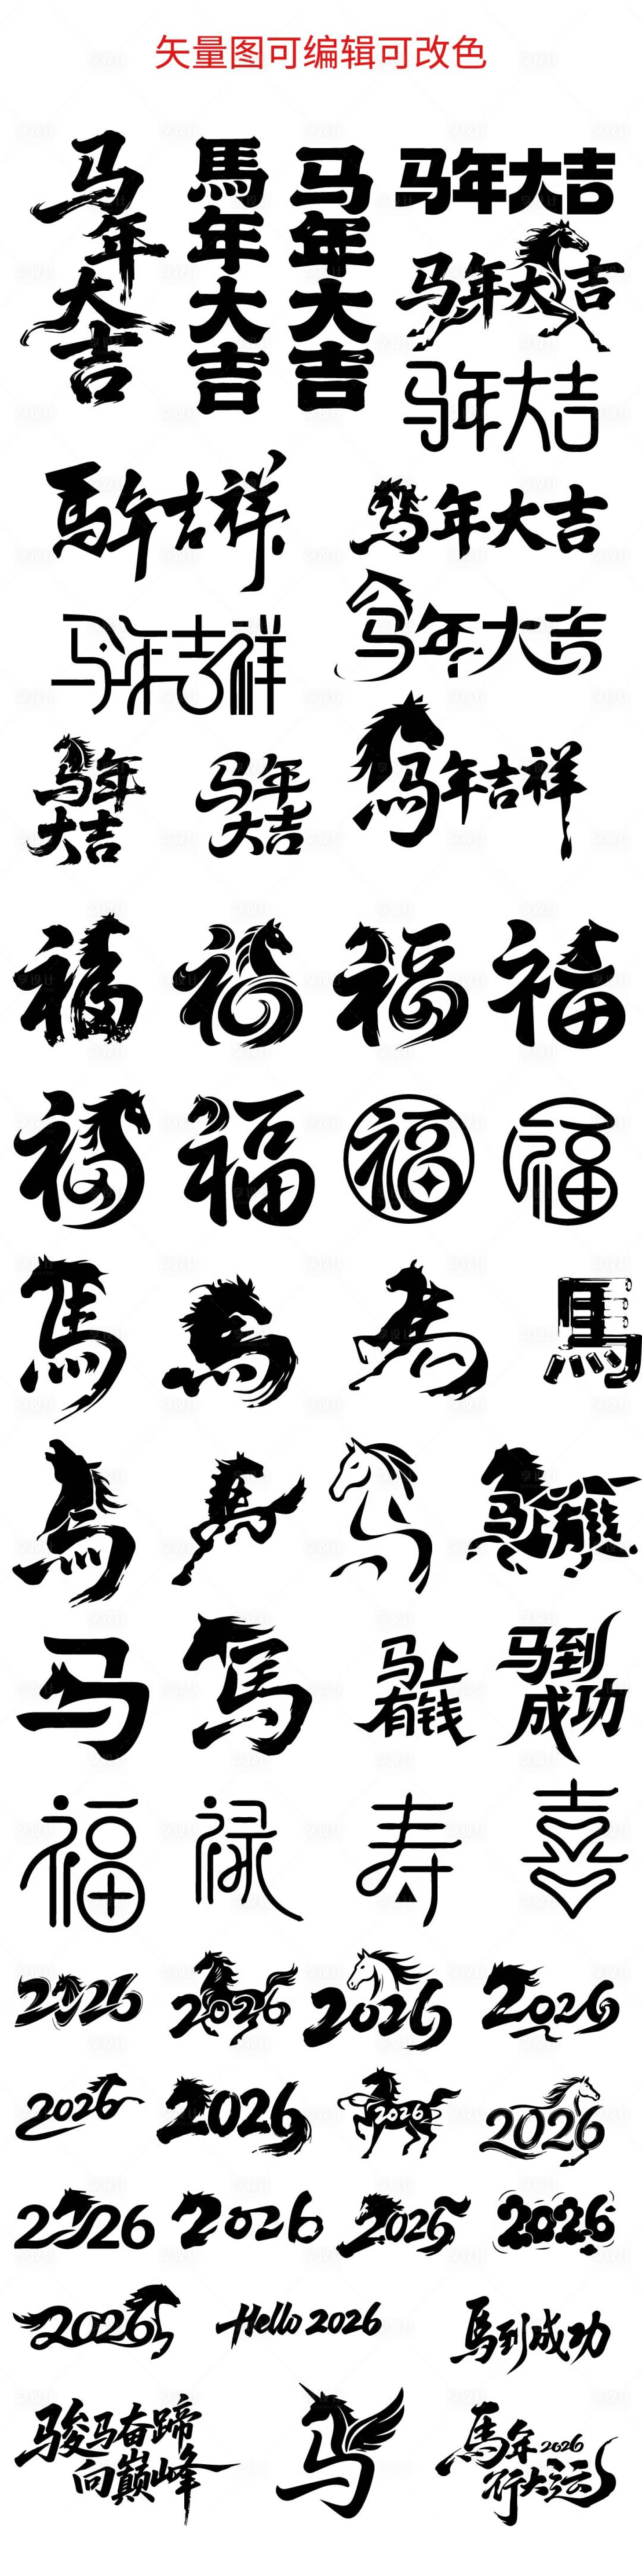 矢量图可编辑可改色
马年大吉
馬年大吉
马年大吉
马年大吉
马年大吉
马年大吉
馬年吉祥
馬年大吉
马年吉祥
马年大吉
马年大吉
马年大吉
馬年吉祥
福 福 福 福
福 福 福 福
馬 馬 馬 馬
馬 馬 马上有钱
马 馬 马上有钱 马到成功
福 禄 寿 喜
2026 2026 2026 2026
2026 2026 2026 2026
2026 2026 2026 2026
2026 Hello 2026 馬到成功
骏马奋蹄
向巅峰
马
馬年2026
行大运
享设计